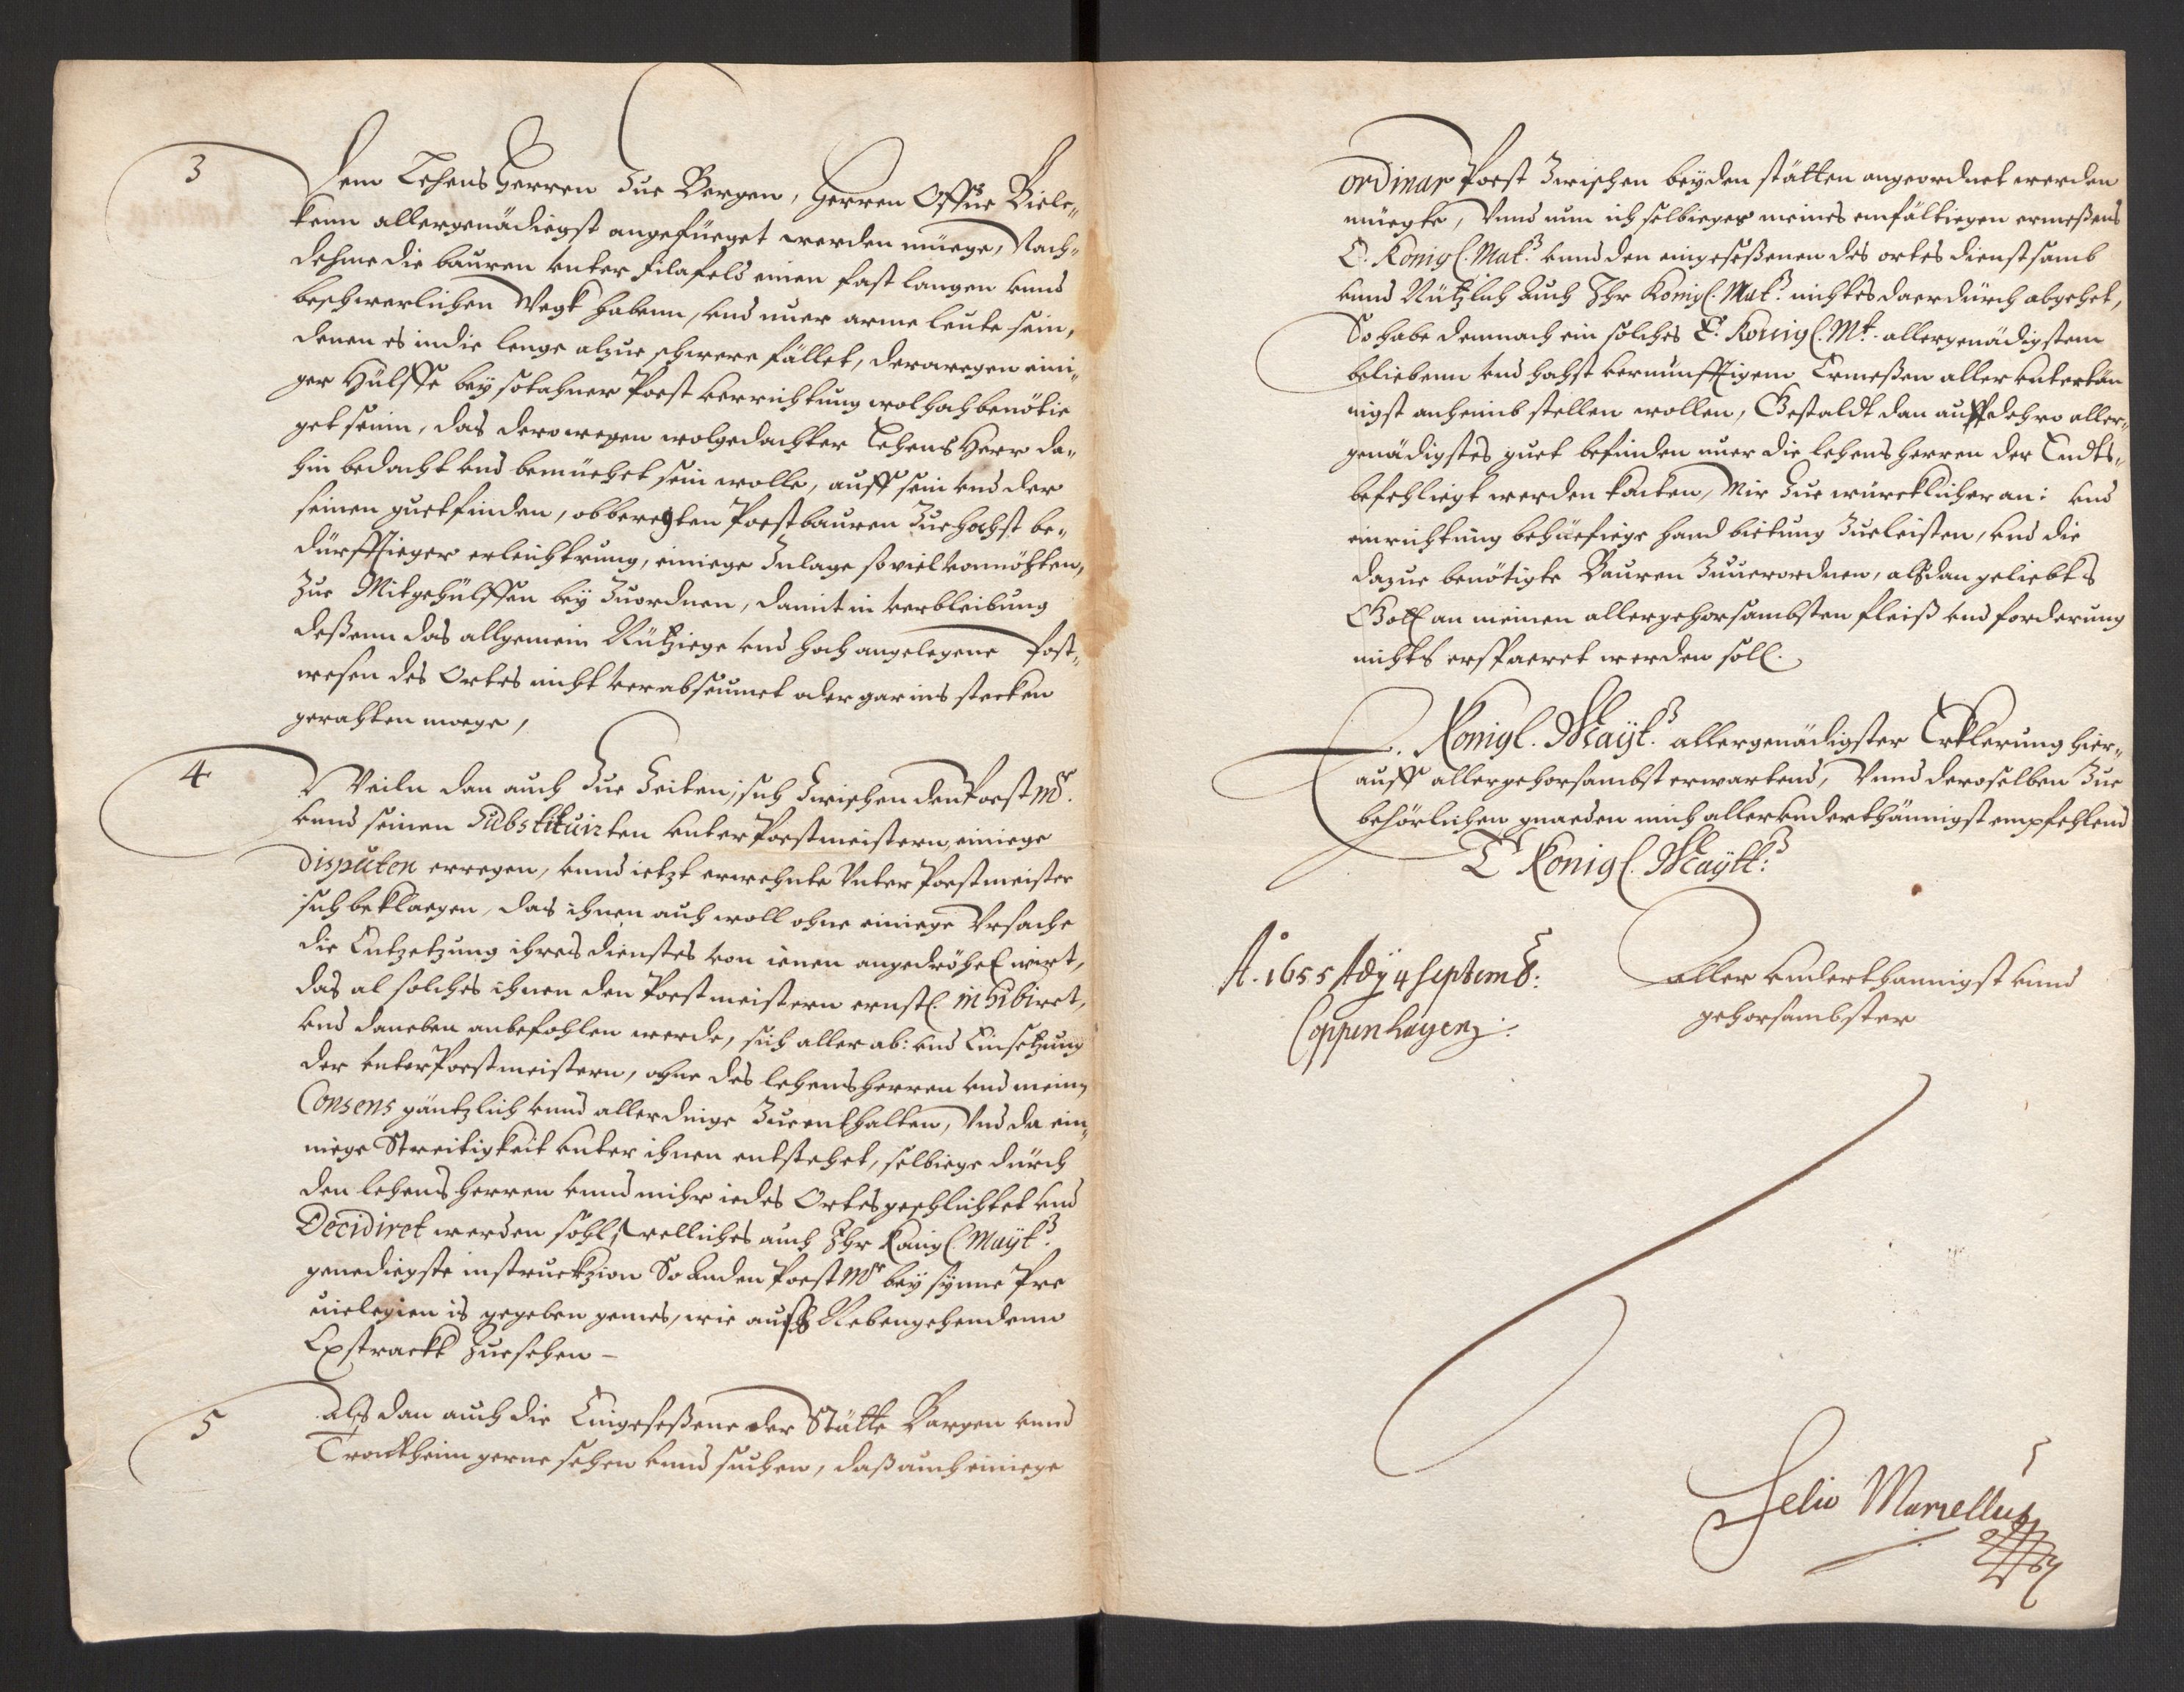 3
Dem Lehens Herren Zue Bergen, Herren Offue Biele„
kenn allergenädiegst angefüeget werden müege, Nach„
dehme die bauren unter Filafels einen fast langen unnd
beschwerlichen Wegk habenn, und nuer arme leute sein,
denen es in die lenge alzue schwere fället, derowegen eini„
ger Hülffe bey sotahner Poest verrichtung wol hoch benötie
get seinn, das derowegen wolgedachter Lehens Herr da„
hin bedacht und bemüehet sein wolle, auff sein und der
seinen guetfinden, obberegten Poestbauren Zue hochst be„
dürfftieger erleichtrung, einiege Zulage so viel vonnöhten,
Zue Mitgehülffen bey Zuordnen, damit in verbleibung
deßenn das allgemein Nützige und hoch angelegene Post„
wesen des Ortes nicht verabseumet oder gar ins stecken
gerahten moege,
4
Weiln dan auch Zue Zeiten, sich Zwischen den Poest Mr.
unnd seinen Substituirten unter Poestmeistern, einiege
disputen erregen, unnd ietzt erwehnte Unter Poestmeister
sich beklaegen, das ihnen auch woll ohne einiege Ursache
die Entzetzung ihres dienstes von ienen angedröhet wirt,
das al solches ihnen den Poestmeistern ernstl. inhibiret,
und daneben anbefohlen werde, sich aller ab: und Einsetzung
der unter Poestmeistern, ohne des lehensherren und meinen
Consens gäntzlich unnd allerdinge Zue enthalten, Und da ein„
niege Streitigkeit unter ihnen entstehet, selbiege durch
den lehens herren unnd mihr iedes Ortes geschlichtet und
Decidiret werden sohl, welliches auch Ihr Konigl. Mayt:
genediegste instruckzion So an den Poest Mr bey synne Pre
uielegien is gegeben gemes, wie auss Nebengehendenn
Exstrackt Zuesehen –
5
Alß dan auch die Eingeseßene der Stätte Bargen unnd
Trontheim gerne sehen unnd suchen, daß auch einiege
ordinar Poest Zwischen beyden stätten angeordnet werden
müegte, Unnd nun ich selbieges meines einfältiegen ermeßens
E. Königl. Mat: unnd den eingeseßenen des ortes dienstsamb
unnd Nützlich auch Ihr Königl. Mat: nichtes daerdurch abgehet,
So habe demnach ein solches E. Königl. Mt. allergenädigstem
beliebenn und hohst vernünfftigem Ermeßen aller untertän
nigst anheimb stellen wollen, Gestaldt dan auff dehro aller„
genädigstes guet befinden nuer die lehens herren der Endts„
befehliegt werden, Mir Zue würcklicher an: und
einrichtung behüefiege hand bietung Zueleisten, und die
dazue benötigte Bauren Zuuerordnen, alßdan geliebts
Gott an meinen allergehorsambsten fleiß und forderung
nichts erspaeret werden soll.
E. Königl. Mayt: allergenädigster Erklerung hier„
auff allergehorsambst erwartend, Unnd deroselben Zue
behörlichen gnaeden mich allerunderthännigst empfehlend
E Königl. Maytt:
A:o 1655 Ady 4 Septemb:
Coppenhagen:
Aller underthannigst unnd
gehorsambster
Selio Marsellus